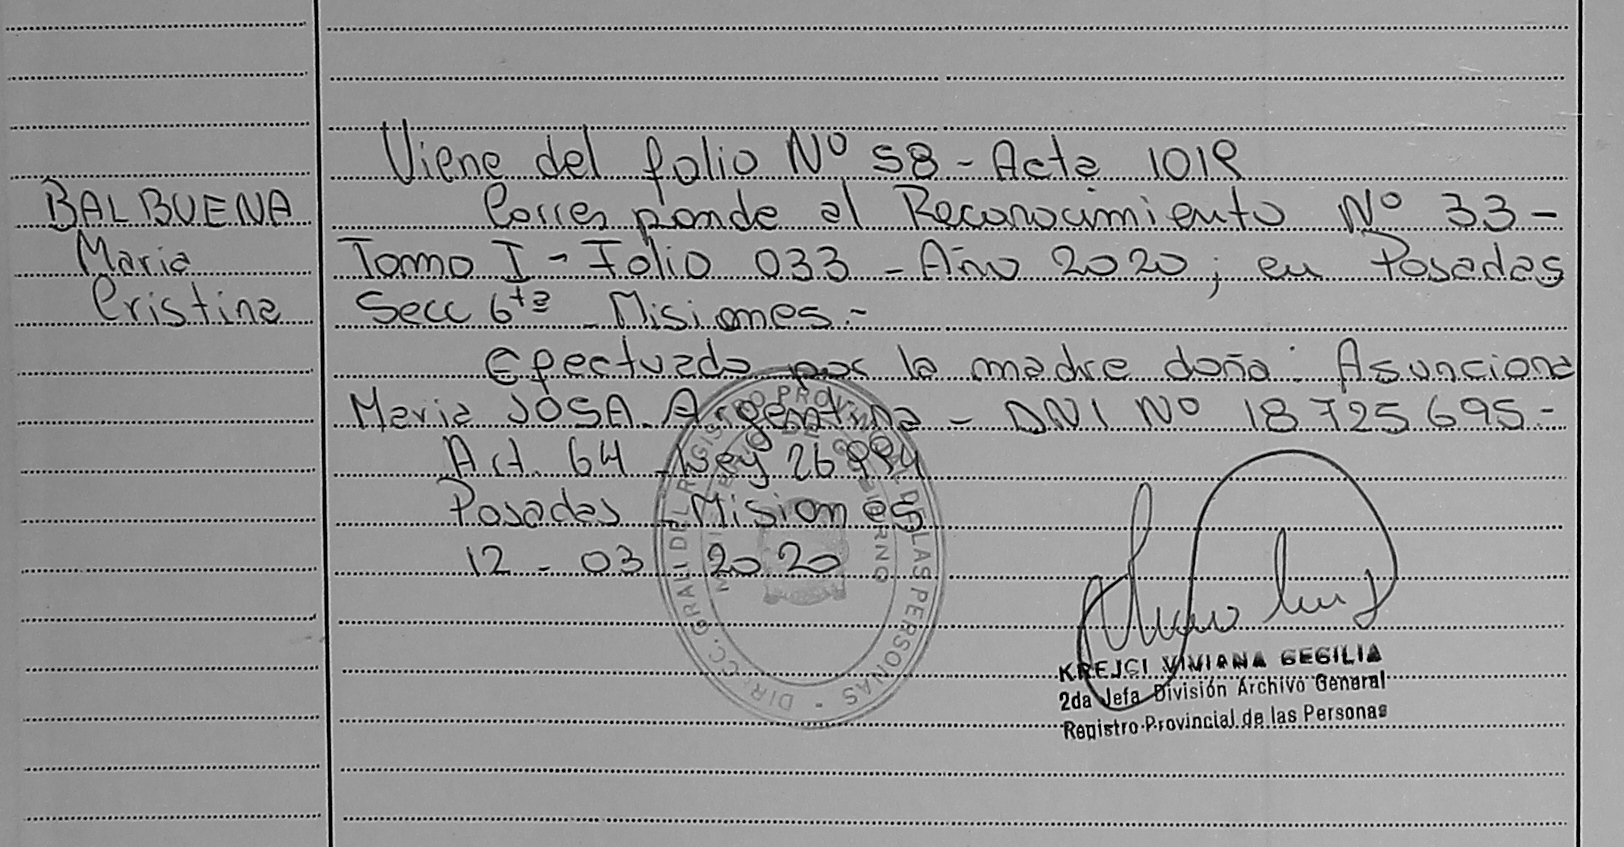 Viene del folio Nº 58 - Acta 1019
BALBUENA
Maria
Cristina
Corresponde al Reconocimiento Nº 33 -
Tomo I - Folio 033 - Año 2020; en Posadas
Secc 6ta - Misiones.-
Efectuado por la madre doña: Asunciona
Maria JOSA. Argentina - DNI Nº 18725695 -
Art. 64 Ley 26994
Posadas - Misiones
12 - 03 2020
DIRECC. GRAL. DEL REGISTRO PROVINCIAL DE LAS PERSONAS
KREJCI VIVIANA CECILIA
2da Jefa División Archivo General
Registro Provincial de las Personas